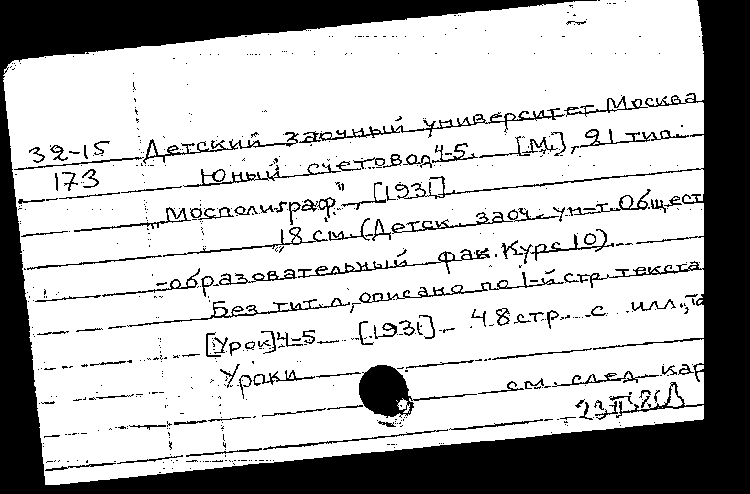 32-15 Детский заочный университет Москва
173 Юный счетовод 4-5. [М.], 21 тип.
"Мосполиграф", [1931].
18 см. (Детск. заоч. ун-т. Общест
-образовательный фак. Курс 10).
Без тит. л., описано по 1-й стр. текста
[Урок] 4-5 [1931]. 48 стр. с илл.,
Уроки
см. след. кар